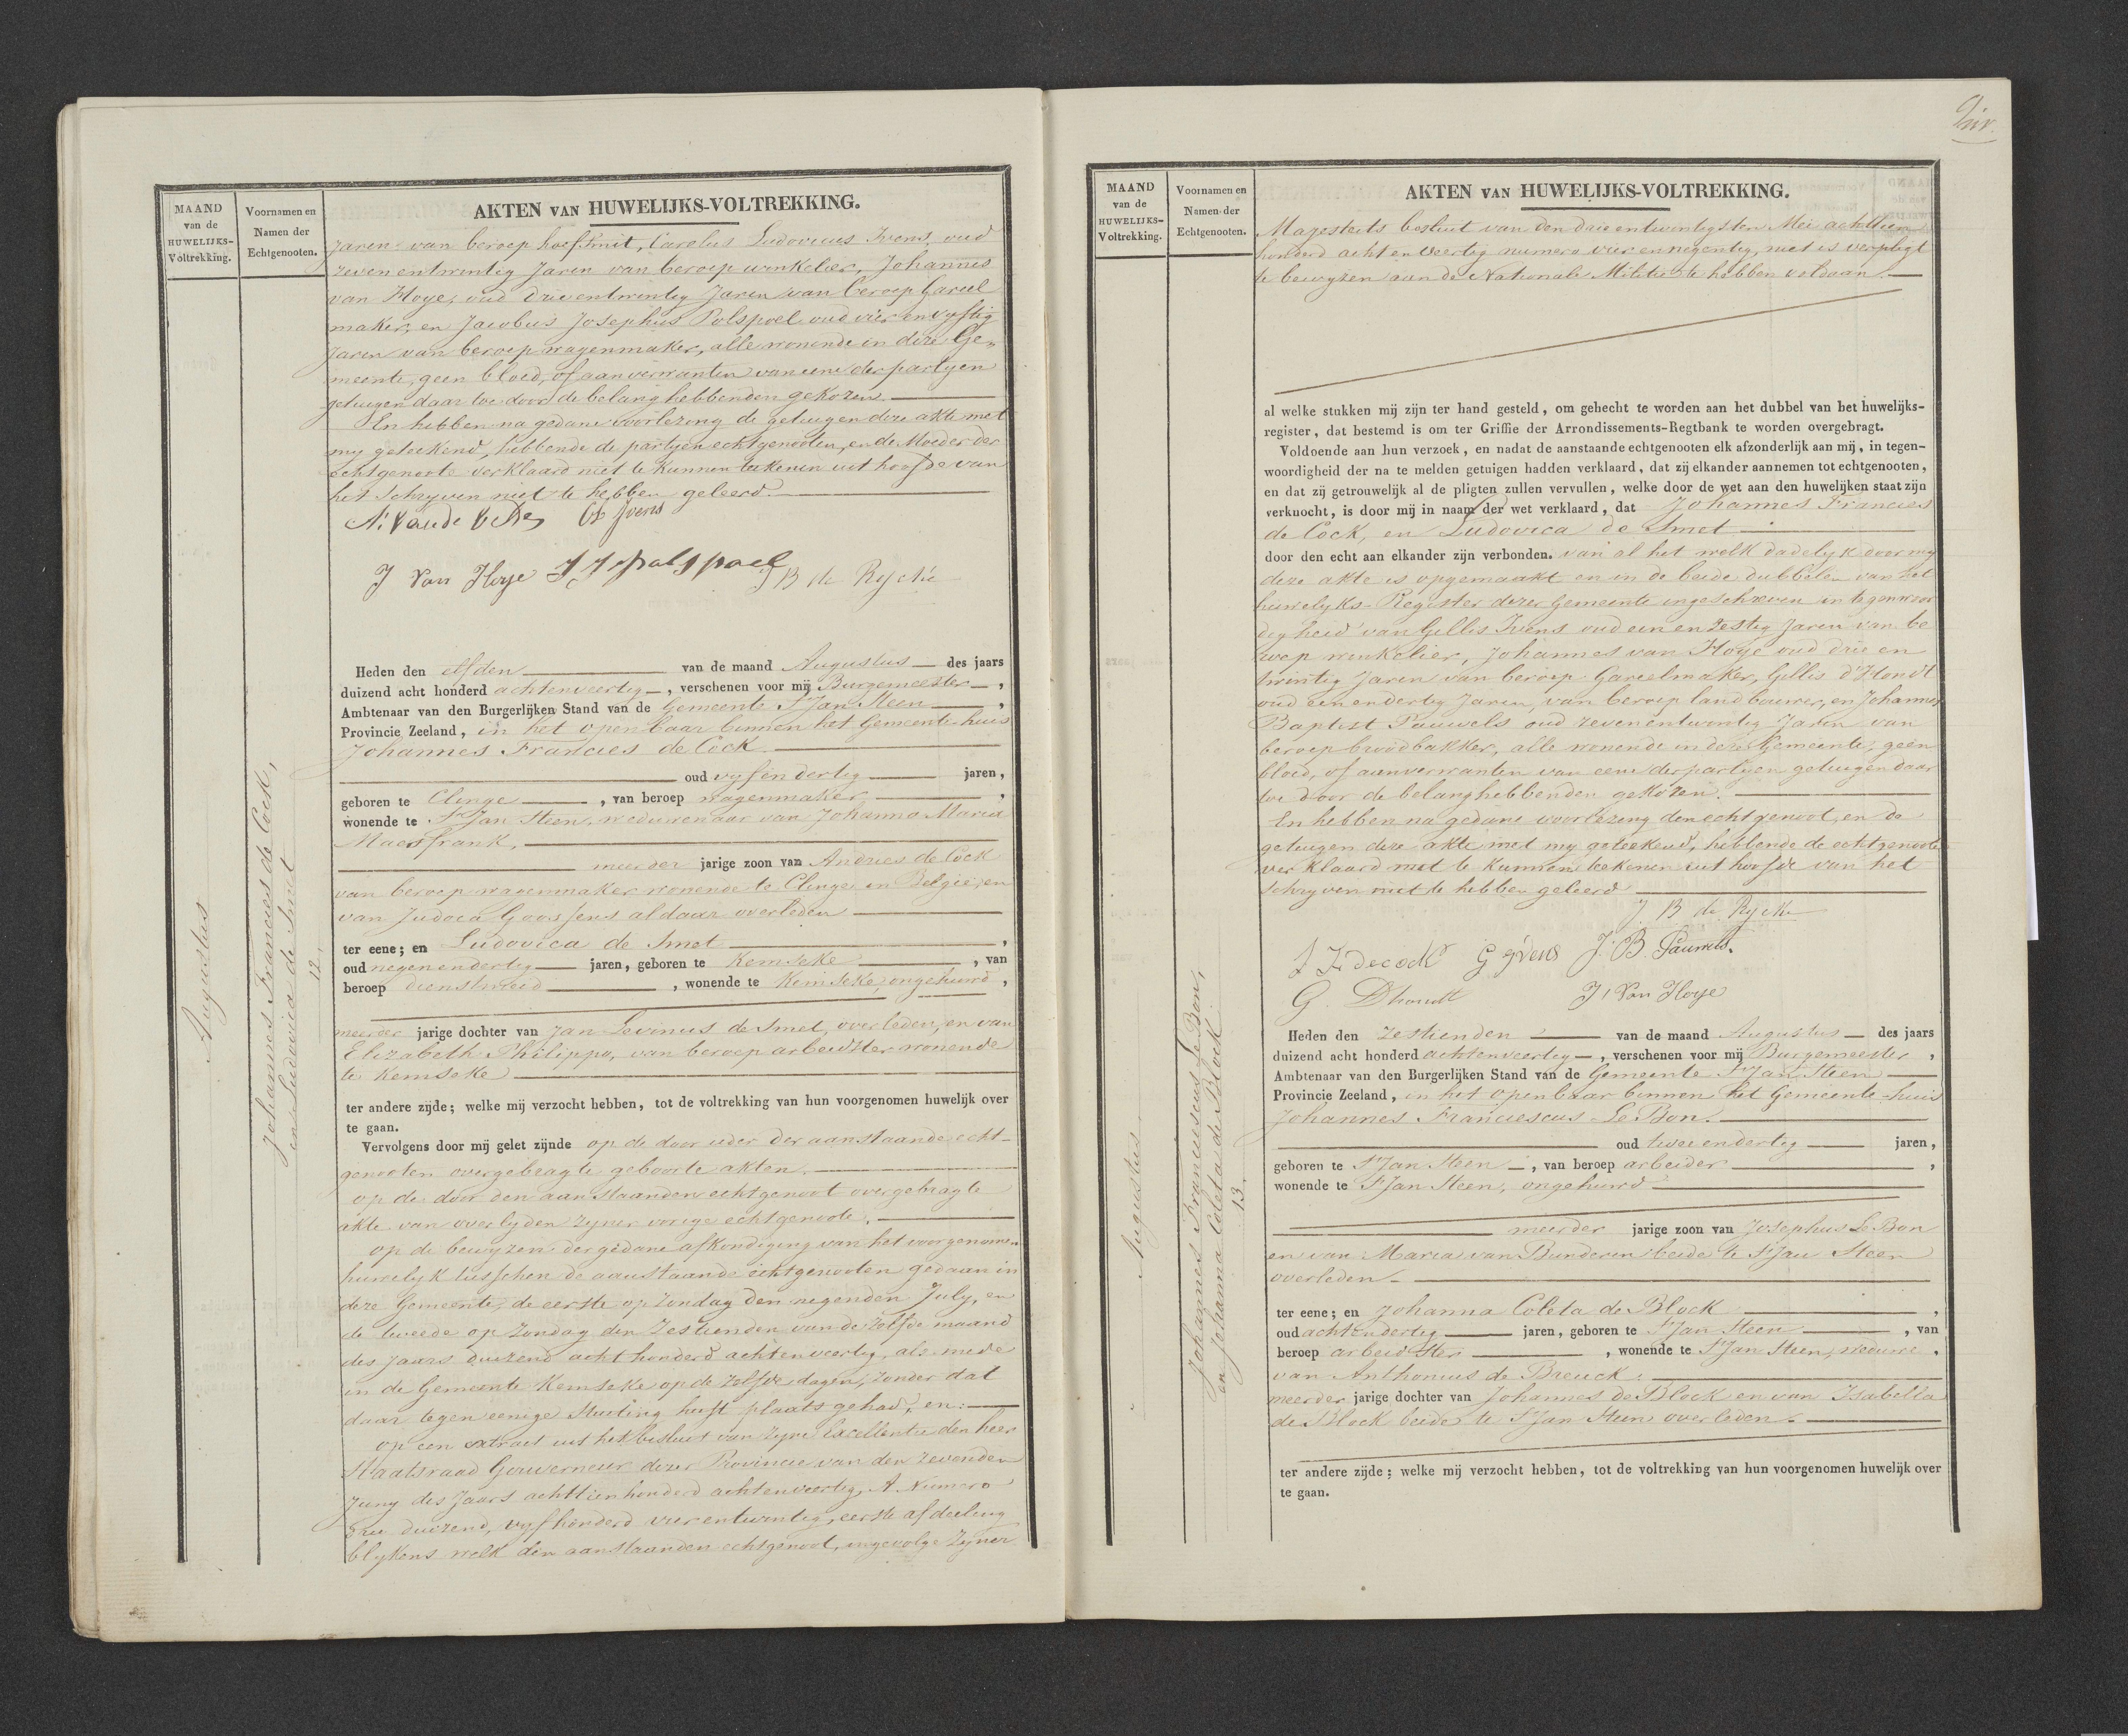 MAAND
van de
HUWELIJKS-
Voltrekking.
Voornamen en
Namen der
Echtgenooten.
AKTEN VAN HUWELIJKS-VOLTREKKING.
Jaren van beroep hoefsmit, Carolus Ludovicus Ivens, oud
zeven entwintig Jaren van beroep winkelier, Johannes
van Hoye, oud drie entwintig Jaren van beroep Gareel
maker, en Jacobus Josephus Polspoel oud vier en vyftig
Jaren van beroep wagenmaker, alle wonende in deze Ge-
meente, geen bloed, of aanverwanten van eene der partyen
getuigen daar toe door de belanghebbenden gekozen.
En hebben na gedane voorlezing de getuigen deze akte met
my geteekend, hebbende de partyen echtgenooten, en de Moeder der
echtgenoote verklaard niet te kunnen teekenen uit hoofde van
het schryven niet te hebben geleerd.
Ivens
J Van Hoye J J polspoel J B de Rycke
Augustus
Johannes Francies de Cock,
en Ludovica de Smet
12.
Heden den elfden van de maand Augustus des jaars
duizend acht honderd achtenveertig, verschenen voor mij Burgemeester,
Ambtenaar van den Burgerlijken Stand van de Gemeente St Jan Steen,
Provincie Zeeland, in het openbaar binnen het Gemeente huis
Johannes Francies de Cock
oud vyfendertig jaren,
geboren te Clinge, van beroep wagenmaker,
wonende te St Jan Steen, weduwenaar van Johanna Maria
Maesfrank,
meerder jarige zoon van Andries de Cock
van beroep wagenmaker wonende te Clinge in Belgie, en
van Judoca Goossens aldaar overleden
ter eene; en Ludovica de Smet,
oud negenendertig jaren, geboren te Kemseke, van
beroep dienstmeid, wonende te Kemseke, ongehuwd,
meerder jarige dochter van Jan Levinus de Smet, overleden, en van
Elizabeth Philippo, van beroep arbeidster wonende
te Kemseke
ter andere zijde; welke mij verzocht hebben, tot de voltrekking van hun voorgenomen huwelijk over
te gaan.
Vervolgens door mij gelet zijnde op de door ieder der aanstaande echt-
genooten overgebragte geboorte akten.
op de door den aanstaanden echtgenoot overgebragte
akte van overlyden zyner vorige echtgenoote.
op de bewyzen der gedane afkondiging van het voorgenomen
huwelyk tusschen de aanstaande echtgenooten gedaan in
deze Gemeente, de eerste op Zondag den negenden July, en
de tweede op Zondag den Zestienden van de zelfde maand
des Jaars duizend acht honderd achtenveertig, als mede
in de Gemeente Kemseke op de zelfde dagen, zonder dat
daar tegen eenige stuiting heeft plaats gehad, en:
op een extract uit het besluit van Zyne Excellentie den heer
Staatsraad Gouverneur dezer Provincie van den zevenden
Juny des Jaars achttienhonderd achtenveertig, A Numero
drie duizend, vyf honderd vierentwintig, eerste afdeeling
blykens welk den aanstaanden echtgenoot, ingevolge Zyner
MAAND
van de
HUWELIJKS-
Voltrekking.
Voornamen en
Namen der
Echtgenooten.
AKTEN VAN HUWELIJKS-VOLTREKKING.
Magesteits besluit van den drie entwintigsten Mei achttien
honderd acht en veertig numero vier ennegentig, niet is verpligt
te bewyzen aan de Nationale Militie te hebben voldaan.
al welke stukken mij zijn ter hand gesteld, om gehecht te worden aan het dubbel van het huwelijks-
register, dat bestemd is om ter Griffie der Arrondissements-Regtbank te worden overgebragt.
Voldoende aan hun verzoek, en nadat de aanstaande echtgenooten elk afzonderlijk aan mij, in tegen-
woordigheid der na te melden getuigen hadden verklaard, dat zij elkander aannemen tot echtgenooten,
en dat zij getrouwelijk al de pligten zullen vervullen, welke door de wet aan den huwelijken staat zijn
verknocht, is door mij in naam der wet verklaard, dat Johannes Francies
de Cock, en Ludovica de Smet
door den echt aan elkander zijn verbonden. van al het welk dadelyk door my
deze akte is opgemaakt en in de beide dubbelen van het
huwelyks-Register dezer Gemeente ingeschreven in tegenwoor
digheid van Gillis Ivens oud een en Zestig Jaren van be
roep winkelier, Johannes van Hoye oud drie en
twintig Jaren van beroep Gareelmaker, Gillis d'Hondt
oud een en dertig Jaren, van beroep landbouwer, en Johannes
Baptist Pauwels oud zevenentwintig Jaren van
beroep broodbakker, alle wonende in deze Gemeente, geen
bloed, of aanverwanten van eene der partyen getuigen daar
toe door de belanghebbenden gekozen.
En hebben na gedane voorlezing den echtgenoot, en de
getuigen deze akte met my geteekend, hebbende de echtgenoote
verklaard niet te kunnen teekenen uit hoofde van het
schryven niet te hebben geleerd
J. B de Rycke
J F decock G Ivens J. B. Pauwels.
G. Dhondt J, Van Hoye
Augustus
Johannes Franciescus Le Bon,
en Johanna Coleta de Block
13.
Heden den Zestienden van de maand Augustus des jaars
duizend acht honderd achtenveertig, verschenen voor mij Burgemeester,
Ambtenaar van den Burgerlijken Stand van de Gemeente St Jan Steen
Provincie Zeeland, in het openbaar binnen het Gemeente-huis
Johannes Franciescus Le Bon.
oud twee endertig jaren,
geboren te St Jan Steen, van beroep arbeider,
wonende te St Jan Steen, ongehuwd
meerder jarige zoon van Josephus Le Bon
en van Maria van Bunderen beide te St Jan Steen
overleden
ter eene; en Johanna Coleta de Block,
oud achtendertig jaren, geboren te St Jan Steen, van
beroep arbeidster, wonende te St Jan Steen, weduwe,
van Anthonius de Breuck
meerder jarige dochter van Johannes De Block en van Isabella
de Block beide te St Jan Steen overleden.
ter andere zijde; welke mij verzocht hebben, tot de voltrekking van hun voorgenomen huwelijk over
te gaan.